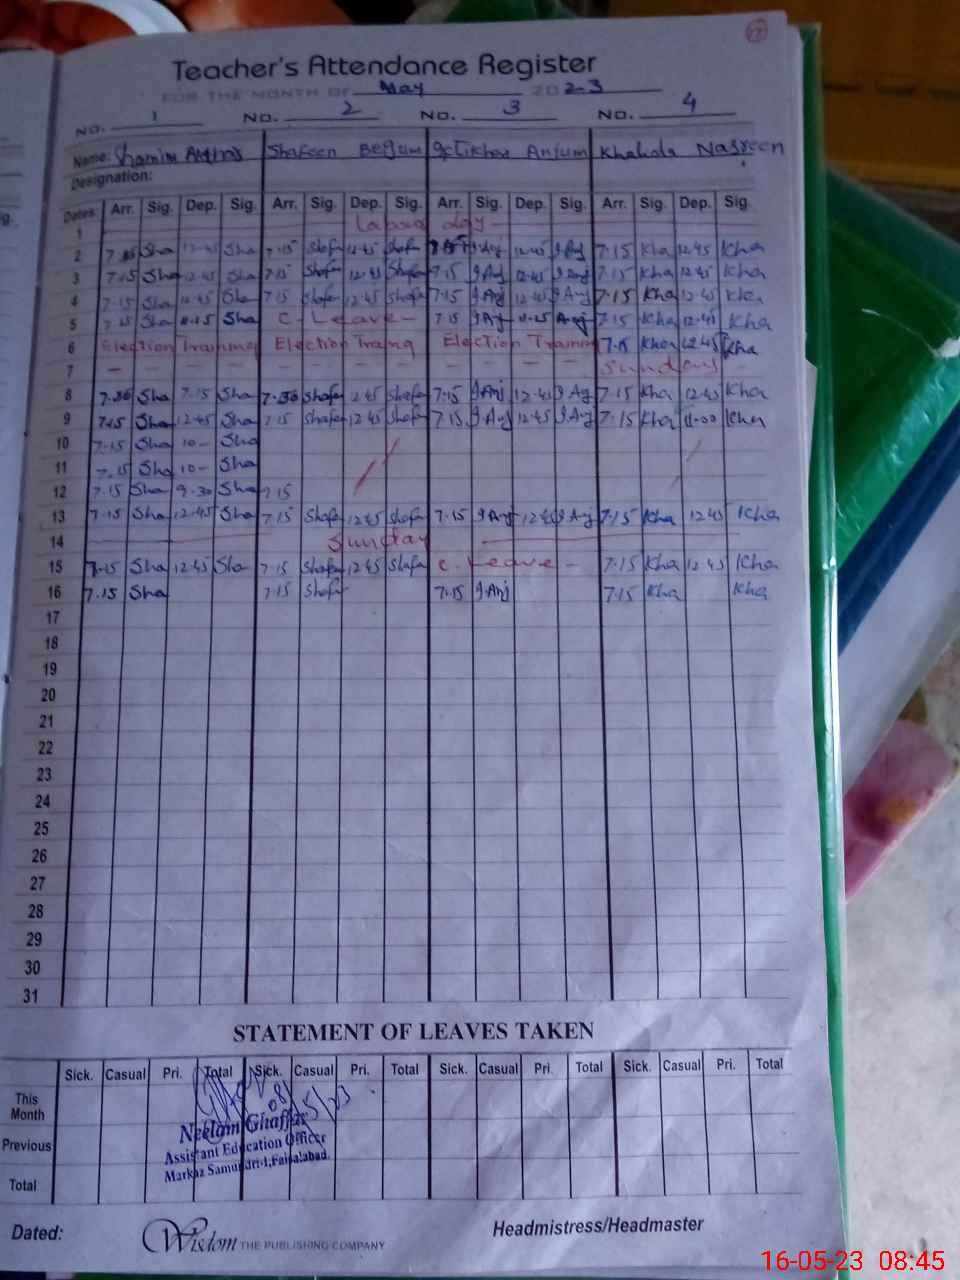 17
Teacher's Attendance Register
FOR THE MONTH OF May 2023
NO. 1 NO. 2 NO. 3 NO. 4
Name: Shamim Shafeen Begum Anjum Khalida Nasreen
Designation:
Dates Arr. Sig. Dep. Sig. Arr. Sig. Dep. Sig. Arr. Sig. Dep. Sig. Arr. Sig. Dep. Sig.
1 Labour day
2 Sha 12-45 Sha 7-15 Shafe 12-45 Shafe 7-15 I Anj 12-45 I Anj 7-15 Kha 12-45 Kha
3 7-15 Sha 12-45 Sha 7-15 Shafe 12-45 Shafe 7-15 I Anj 12-45 I Anj 7-15 Kha 12-45 Kha
4 7-15 Sha 12-45 Sha 7-15 Shafe 12-45 Shafe 7-15 I Anj 12-45 I Anj 7-15 Kha 12-45 Kha
5 7-15 Sha Sha C-Leave- 7-15 I Anj Anj 7-15 Kha 12-45 Kha
6 Election Training Election Traing Election Training 7-15 Kha 12-45 Kha
7 - - - - - - - - - - Sunday -
8 Sha Sha Shafe 12-45 Shafe 7-15 I Anj 12-45 I Anj 7-15 Kha 12-45 Kha
9 7-15 Sha 12-45 Sha 7-15 Shafe 12-45 Shafe 7-15 I Anj 12-45 I Anj 7-15 Kha 11-00 Kha
10 7-15 Sha 10- Sha
11 7-15 Sha 10- Sha
12 7-15 Sha 9-30 Sha 7-15
13 7-15 Sha 12-45 Sha 7-15 Shafe 12-45 Shafe 7-15 I Anj 12-45 I Anj 7-15 Kha 12-45 Kha
14 Sunday
15 7-15 Sha 12-45 Sha 7-15 Shafe 12-45 Shafe C-Leave - 7-15 Kha 12-45 Kha
16 7-15 Sha 7-15 Shafe 7-15 I Anj 7-15 Kha Kha
17
18
19
20
21
22
23
24
25
26
27
28
29
30
31
STATEMENT OF LEAVES TAKEN
Sick. Casual Pri. Total Sick. Casual Pri. Total Sick. Casual Pri. Total Sick. Casual Pri. Total
This Month
Previous
Total
08/5/23
Neelam Ghaffar
Assistant Education Officer
Markaz Samundri-I, Faisalabad.
Dated:
Wisdom THE PUBLISHING COMPANY
Headmistress/Headmaster
16-05-23 08:45